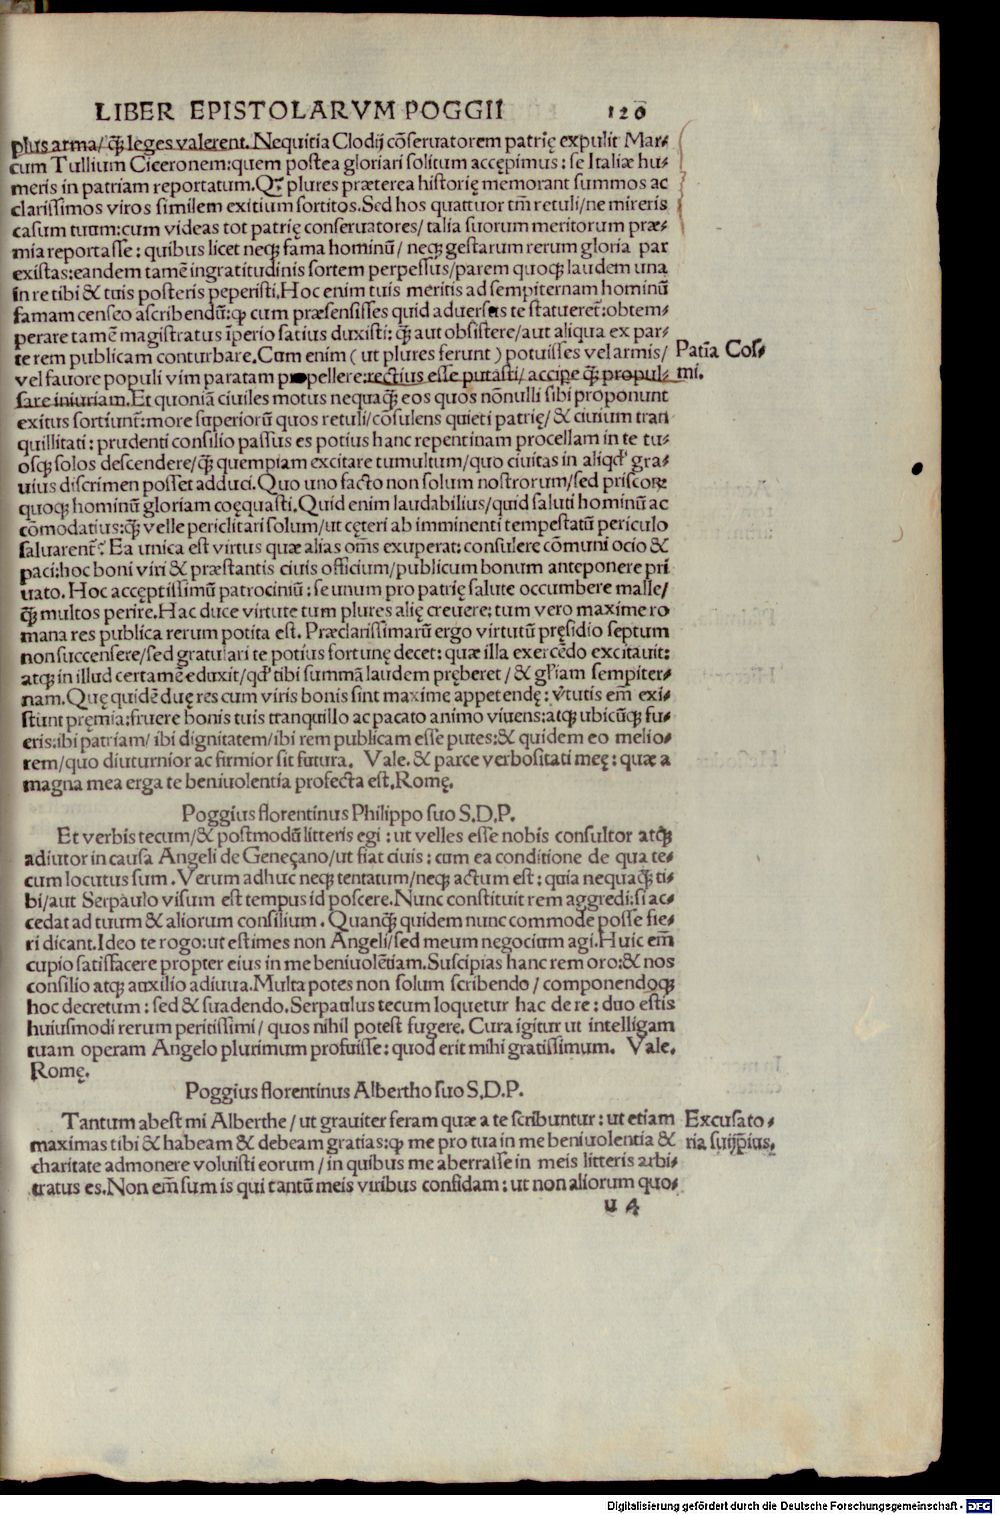 LIBER EPISTOLARVM POGGII 120
plus arma/ q̃ leges valerent. Nequitia Clodij cõseruatorem patrię expulit Mar⸗
cum Tullium Ciceronem: quem postea gloriari solitum accępimus: se Italiæ hu⸗
meris in patriam reportatum. Q; plures præterea historię memorant summos ac
clarissimos viros similem exitium sortitos. Sed hos quattuor tm̃ retuli/ ne mireris
casum tuum: cum videas tot patrię conseruatores/ talia suorum meritorum præ⸗
mia reportasse: quibus licet neqꝫ fama hominũ/ neqꝫ gestarum rerum gloria par
existas: eandem tamẽ ingratitudinis sortem perpessus/ parem quoqꝫ laudem una
in re tibi & tuis posteris peperisti. Hoc enim tuis meritis ad sempiternam hominũ
famam censeo ascribendũ: ꝙ cum præsensisses quid aduersus te statueret̃: obtem⸗
perare tamẽ magistratus ĩperio satius duxisti: q̃ aut obsistere/ aut aliqua ex par⸗
te rem publicam conturbare. Cum enim ( ut plures ferunt ) potuisses vel armis/
Patr̃ia Cos⸗
vel fauore populi vim paratam propellere: rectius esse putasti/ accipe q̃ propul⸗
mi.
sare iniuriam. Et quoniã ciuiles motus nequaq̃ eos quos nõnulli sibi proponunt
exitus sortiunt̃: more superiorũ quos retuli/ cõsulens quieti patrię/ & ciuium tran
quillitati: prudenti consilio passus es potius hanc repentinam procellam in te tu⸗
osqꝫ solos descendere/ q̃ quempiam excitare tumultum/ quo ciuitas in aliqđ gra⸗
uius discrimen posset adduci. Quo uno facto non solum nostrorum/ sed priscoꝝ
quoqꝫ hominũ gloriam coęquasti. Quid enim laudabilius/ quid saluti hominũ ac
cõmodatius: q̃ velle periclitari solum/ ut cęteri ab imminenti tempestatũ periculo
saluarent̃? Ea unica est virtus quæ alias om̃s exuperat: consulere cõmuni ocio &
paci: hoc boni viri & præstantis ciuis officium/ publicum bonum anteponere pri
uato. Hoc accęptissimũ patrociniũ: se unum pro patrię salute occumbere malle/
q̃ multos perire. Hac duce virtute tum plures alię creuere: tum vero maxime ro
mana res publica rerum potita est. Præclarissimarũ ergo virtutũ pręsidio septum
non succensere/ sed gratulari te potius fortunę decet: quæ illa exercẽdo excitauit:
atqꝫ in illud certamẽ eduxit/ qđ tibi summã laudem pręberet/ & gl̃iam sempiter⸗
nam. Quę quidẽ duę res cum viris bonis sint maxime appetendę: ṽtutis em̃ exi⸗
stunt pręmia: fruere bonis tuis tranquillo ac pacato animo viuens: atqꝫ ubicũqꝫ fu⸗
eris: ibi patriam/ ibi dignitatem/ ibi rem publicam esse putes: & quidem eo melio⸗
rem/ quo diuturnior ac firmior sit futura. Vale. & parce verbositati meę: quæ a
magna mea erga te beniuolentia profecta est. Romę.
Poggius florentinus Philippo suo S.D.P.
Et verbis tecum/ & postmodũ litteris egi: ut velles esse nobis consultor atqꝫ
adiutor in causa Angeli de Geneçano/ ut fiat ciuis: cum ea conditione de qua te⸗
cum locutus sum. Verum adhuc neqꝫ tentatum/ neqꝫ actum est: quia nequaq̃ ti⸗
bi/ aut Serpaulo visum est tempus id poscere. Nunc constituit rem aggredi: si ac⸗
cedat ad tuum & aliorum consilium. Quanq̃ quidem nunc commode posse fie⸗
ri dicant. Ideo te rogo: ut estimes non Angeli/ sed meum negocium agi. Huic em̃
cupio satisfacere propter eius in me beniuolẽtiam. Suscipias hanc rem oro: & nos
consilio atqꝫ auxilio adiuua. Multa potes non solum scribendo/ componendoqꝫ
hoc decretum: sed & suadendo. Serpaulus tecum loquetur hac de re: duo estis
huiusmodi rerum peritissimi/ quos nihil potest fugere. Cura igitur ut intelligam
tuam operam Angelo plurimum profuisse: quod erit mihi gratissimum. Vale.
Romę.
Poggius florentinus Albertho suo S.D.P.
Tantum abest mi Alberthe/ ut grauiter feram quæ a te scribuntur: ut etiam
Excusato⸗
maximas tibi & habeam & debeam gratias: ꝙ me pro tua in me beniuolentia &
ria suijp̃ius.
charitate admonere voluisti eorum/ in quibus me aberrasse in meis litteris arbi⸗
tratus es. Non em̃ sum is qui tantũ meis viribus confidam: ut non aliorum quo⸗
u 4
Digitalisierung gefördert durch die Deutsche Forschungsgemeinschaft - DFG